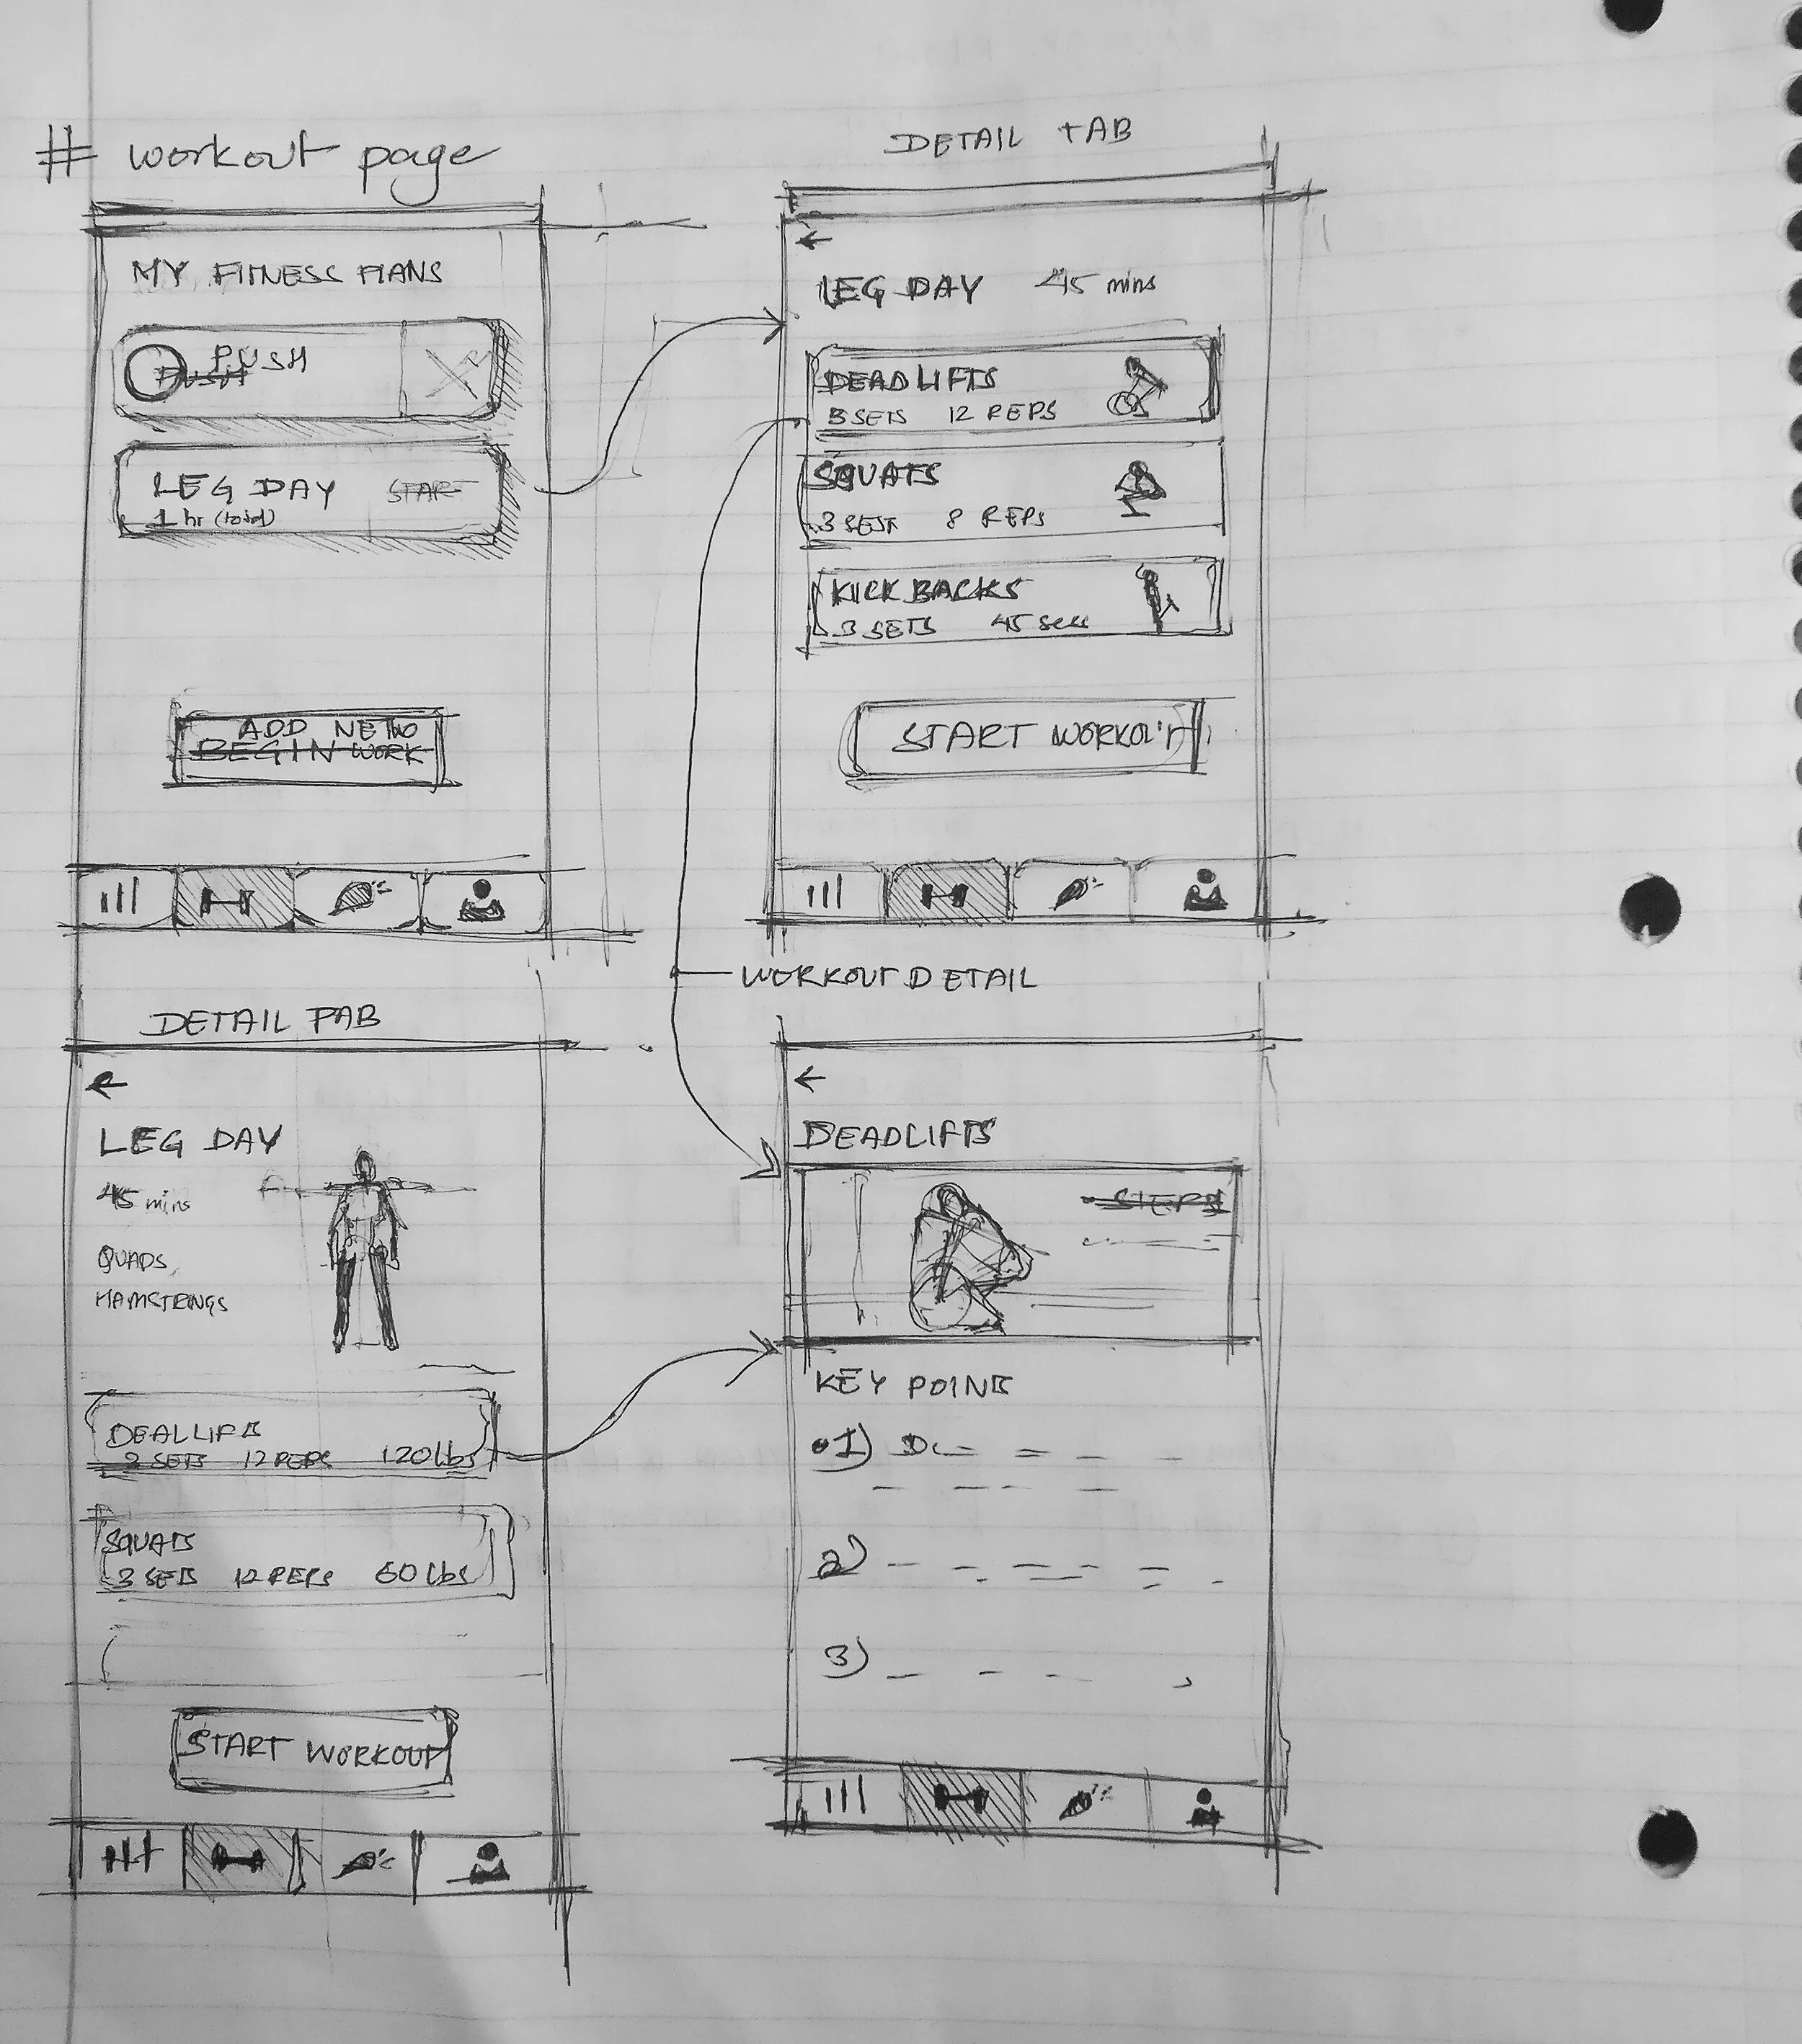 # workout page
MY FITNESS PLANS
PUSH
PUSH
LEG DAY START
1 hr (total)
ADD NEW
BEGIN WORK
DETAIL TAB
←
LEG DAY 45 mins
DEADLIFTS
3 SETS 12 REPS
SQUATS
3 SETS 8 REPS
KICK BACKS
3 SETS 45 secs
START WORKOUT
WORKOUT DETAIL
DETAIL TAB
←
LEG DAY
45 mins
QUADS,
HAMSTRINGS
DEALLIFTS
3 SETS 12 REPS 120 lbs
SQUATS
3 SETS 12 REPS 60 lbs
START WORKOUT
←
DEADLIFTS
STEPS
KEY POINTS
1)
2)
3)